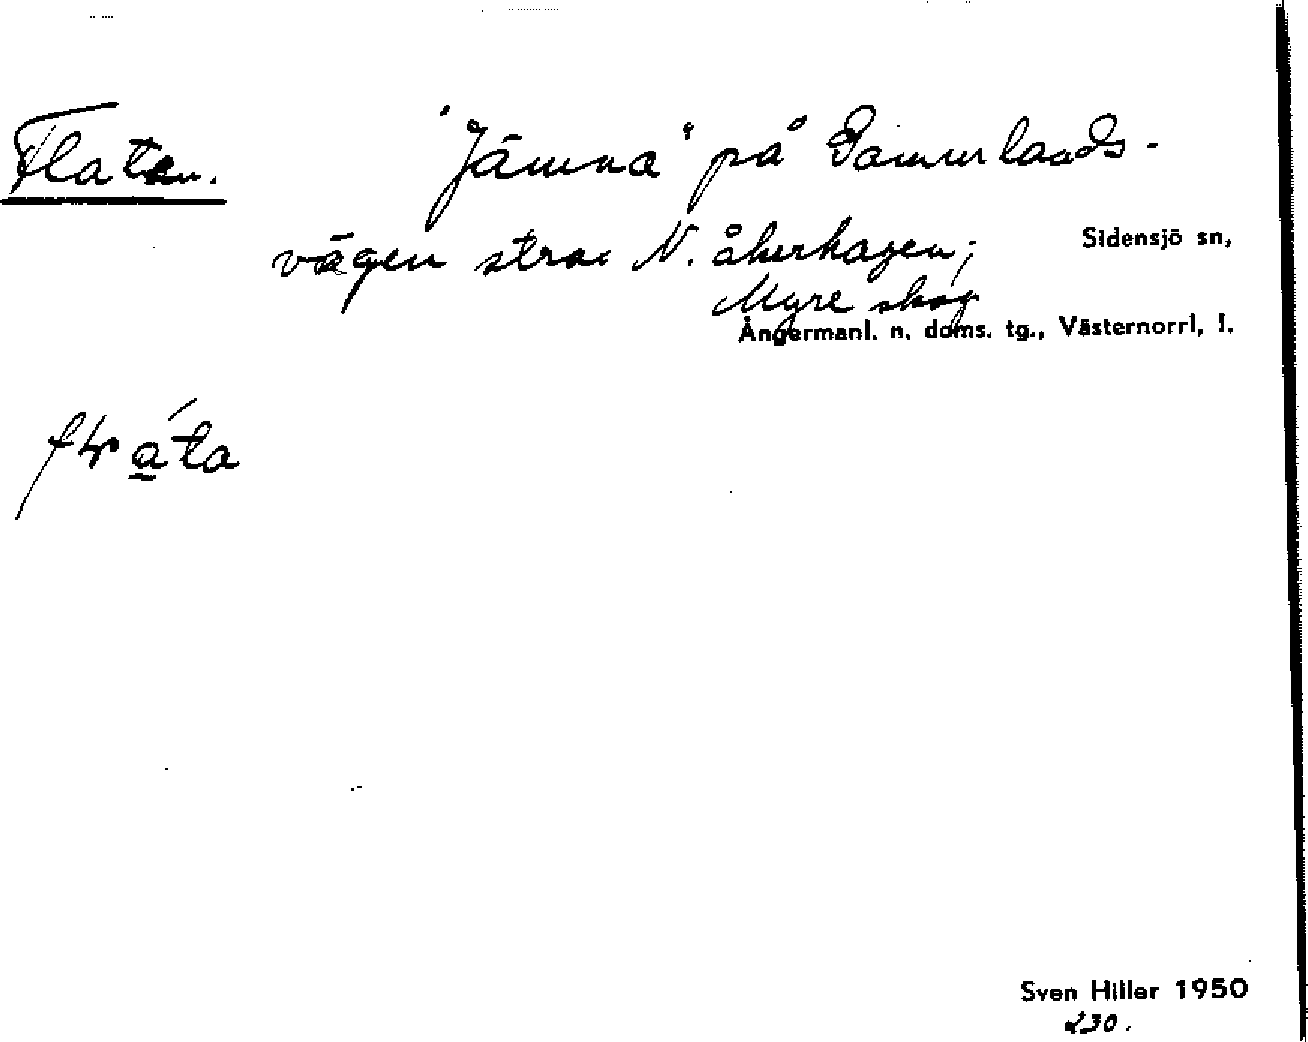 Flaten. "Jämna" på Sommarlands-
vägen strax N. åkerhagen;
Sidensjö sn,
Myre skog
Ångermanl. n. doms. tg., Västernorrl, l.
Sven Hiller 1950
230.